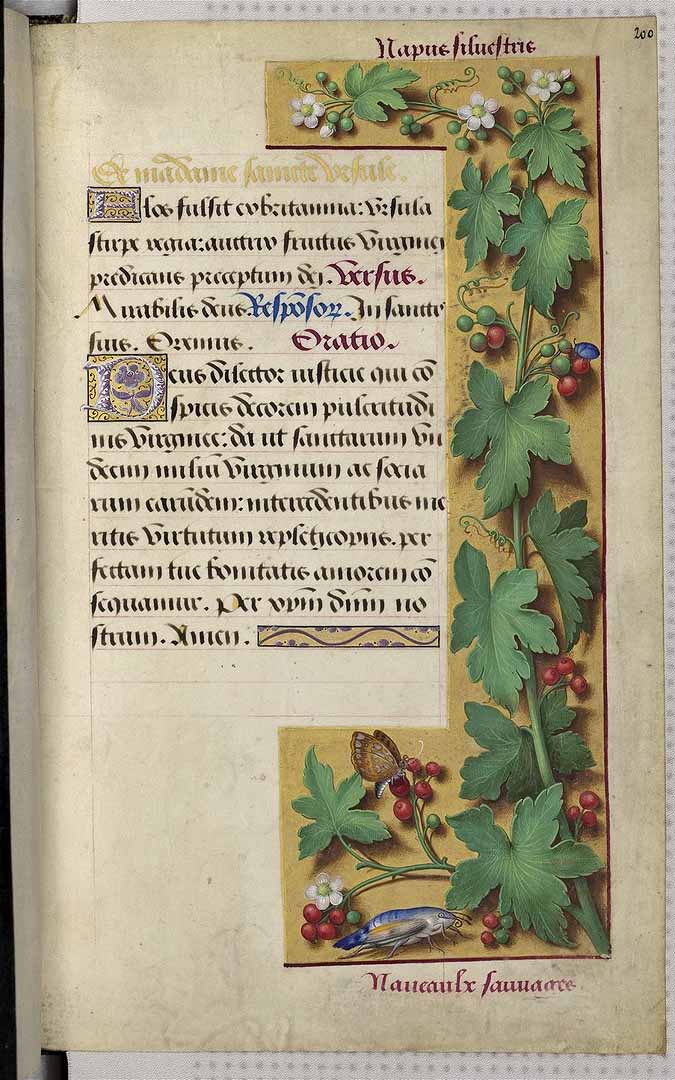 200
Napus siluestris
De madame saincte Vrsule.
Flos fulsit ex britannia: Vrsula
stirpe regia: auctrix fructus Virginei
predicans preceptum dei. Versus.
Mirabilis deus. Respōsor. In sanctis
suis. Oremus. Oratio.
Deus dilector iusticie qui cō
spicis decorem pulcritudi
nis Virginee: da ut sanctarum vn
decim milium Virginum ac socia
rum earūdem: intercedentibus me
ritis Virtutum repleti copijs. per
fectam tue bonitatis amorem cō
sequamur. Per xp̄m dn̄m no
strum. Amen.
Naueaulx sauuages